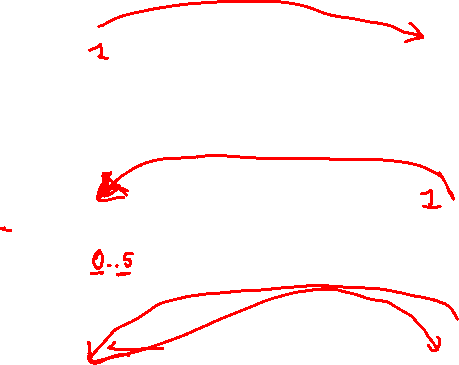 1
1
0..5